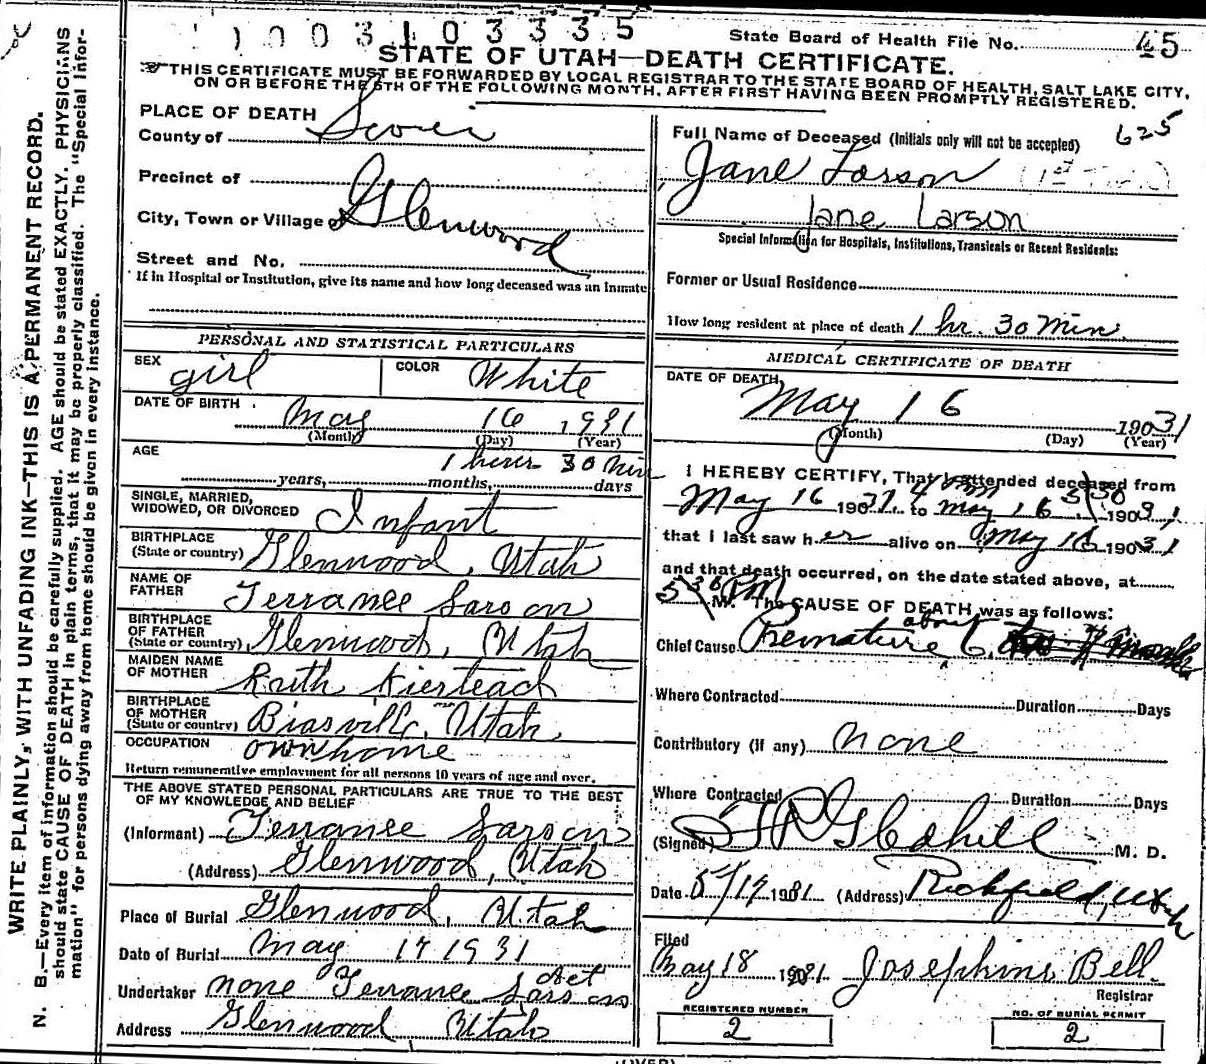 1003103335
State Board of Health File No. 45
STATE OF UTAH—DEATH CERTIFICATE.
THIS CERTIFICATE MUST BE FORWARDED BY LOCAL REGISTRAR TO THE STATE BOARD OF HEALTH, SALT LAKE CITY,
ON OR BEFORE THE 5TH OF THE FOLLOWING MONTH, AFTER FIRST HAVING BEEN PROMPTLY REGISTERED.
WRITE PLAINLY, WITH UNFADING INK—THIS IS A PERMANENT RECORD.
N. B.—Every item of information should be carefully supplied. AGE should be stated EXACTLY. PHYSICIANS
should state CAUSE OF DEATH in plain terms, that it may be properly classified. The "Special Infor-
mation" for persons dying away from home should be given in every instance.
PLACE OF DEATH
County of Sevier
Precinct of
City, Town or Village of Glenwood
Street and No.
If in Hospital or Institution, give its name and how long deceased was an Inmate
PERSONAL AND STATISTICAL PARTICULARS
SEX girl COLOR White
DATE OF BIRTH May 16 1931
(Month) (Day) (Year)
AGE 1 hour 30 Min
years, months, days
SINGLE, MARRIED,
WIDOWED, OR DIVORCED Infant
BIRTHPLACE
(State or country) Glenwood, Utah
NAME OF
FATHER Terrance Larson
BIRTHPLACE
OF FATHER
(State or country) Glenwood, Utah
MAIDEN NAME
OF MOTHER Ruth
BIRTHPLACE
OF MOTHER
(State or country) Utah
OCCUPATION own home
Return remunerative employment for all persons 10 years of age and over.
THE ABOVE STATED PERSONAL PARTICULARS ARE TRUE TO THE BEST
OF MY KNOWLEDGE AND BELIEF
(Informant) Terrance Larson
(Address) Glenwood, Utah
Place of Burial Glenwood, Utah
Date of Burial May 17 1931
Undertaker none Terrance Larson Act
Address Glenwood Utah
625
Full Name of Deceased (Initials only will not be accepted)
Jane Larson
Jane Larson
Special Information for Hospitals, Institutions, Transients or Recent Residents:
Former or Usual Residence
How long resident at place of death 1 hr. 30 Min.
MEDICAL CERTIFICATE OF DEATH
DATE OF DEATH
May 16 19031
(Month) (Day) (Year)
I HEREBY CERTIFY, That I attended deceased from
May 16 19031. 4 PM to May 16 5:30 19031
that I last saw her alive on May 16 19031
and that death occurred, on the date stated above, at
5:30 PM M. The CAUSE OF DEATH was as follows:
Chief Cause Premature about 6
Where Contracted Duration Days
Contributory (if any) none
Where Contracted Duration Days
(Signed) M. D.
Date 5/17 1931 (Address) Richfield, Utah
Filed
May 18 1931 Josephine Bell
Registrar
REGISTERED NUMBER
2
NO. OF BURIAL PERMIT
2
(OVER)